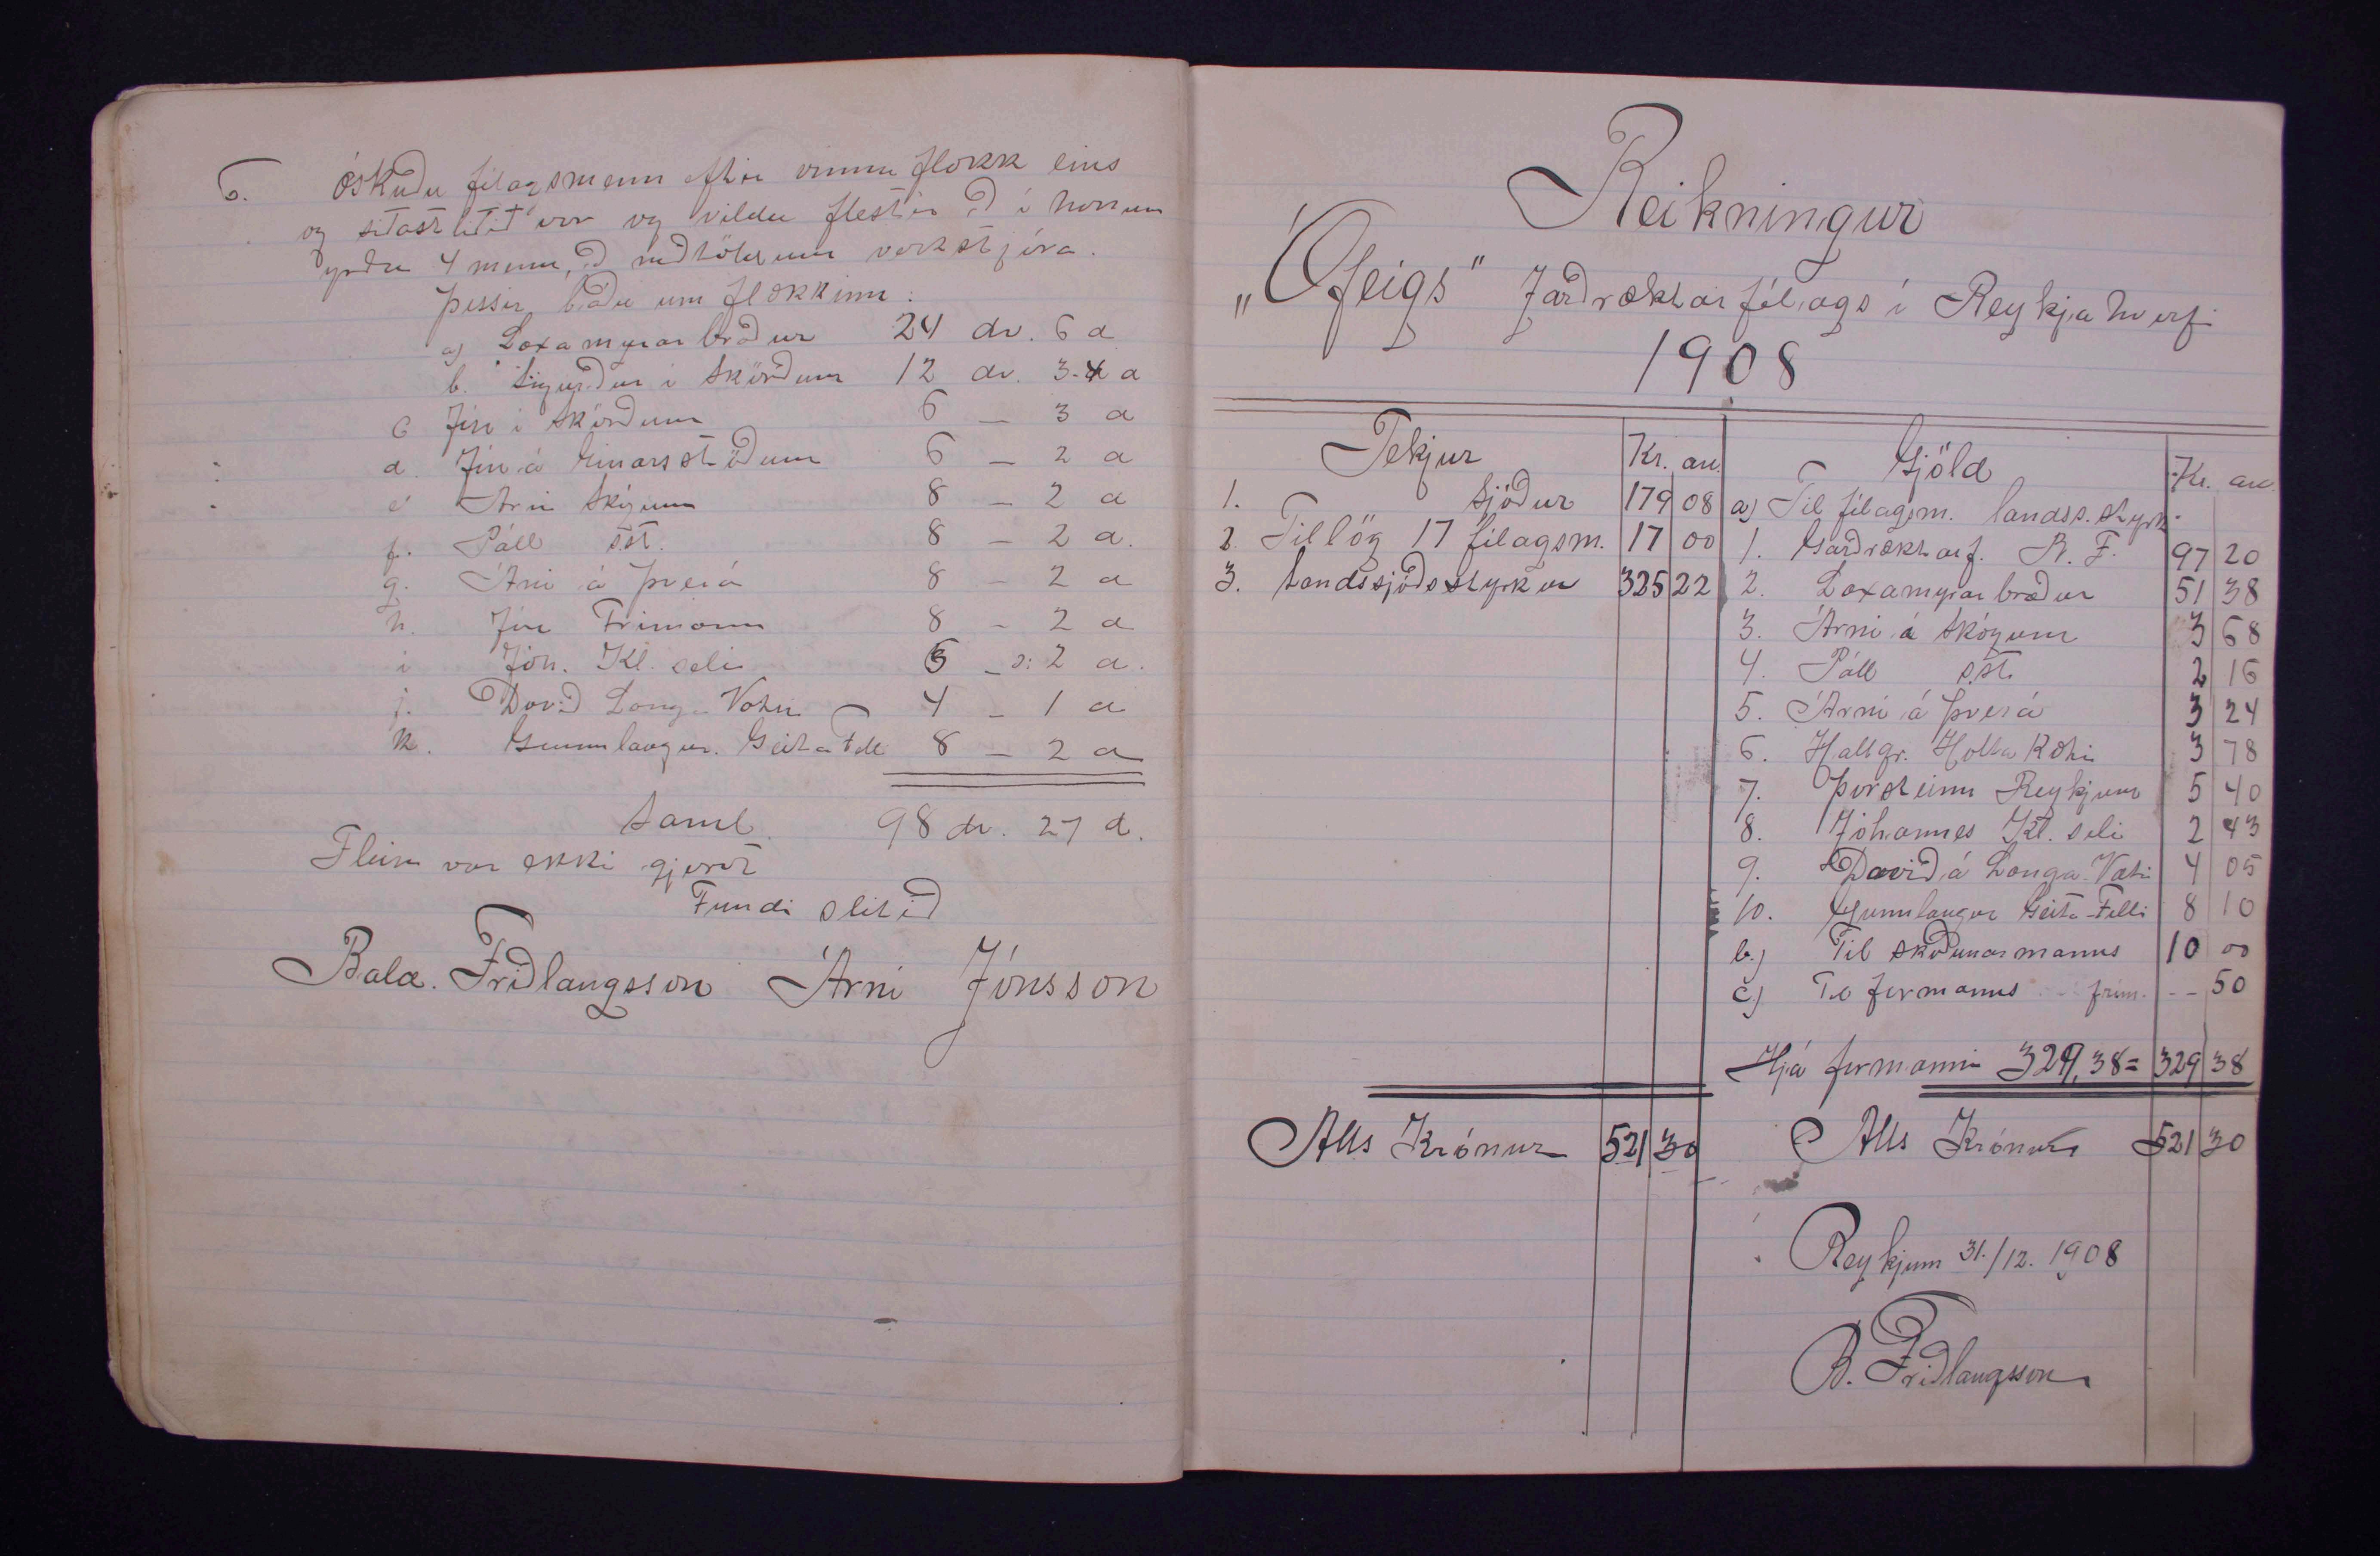 6. óskuðu félagsmenn eftir vinnu flokk eins
og síðastliðið vor og vildu flestir að í honum
yrðu 4 menn, að meðtöldum verkstjóra.
Þessir báðu um flokkinn:
a) Laxamýrar bræður 24 dr. 6 d
b. Sigurður í Skörðum 12 dr. 3-4 d
c Jón í Skörðum 6 — 3 d
d. Jón á Einarsstöðum 6 — 2 d
e Árni Skógum 8 — 2 d
f. Páll s.st. 8 — 2 d.
g. Árni á Þverá 8 — 2 d
h. Jón Frímann 8 — 2 d
i Jóh. Kl. seli 6 — 2 d.
j. Davíð Langa Vatni 4 — 1 d
k. Gunnlaugur. Geitafelli 8 — 2 d
Saml. 98 dr. 27 d.
Fleira var ekki gjört
Fundi slitið
Bald. Friðlaugsson Árni Jónsson
Reikningur
„Ófeigs" Jarðræktarfélags í Reykjahverfi
1908
Tekjur Kr. au.
1. Sjóður 179 08
2. Tillög 17 félagsm. 17 00
3. Landssjóðsstyrkur 325 22
Alls Krónur 521 30
Gjöld Kr. au.
a) Til félagsm. landss. styrk
1. Garðræktarf. R. F. 97 20
2. Laxamýrar bræður 51 38
3. Árni á Skógum 3 68
4. Páll s.st. 2 16
5. Árni á Þverá 3 24
6. Hallgr. Holtakoti 3 78
7. Þorsteinn Reykjum 5 40
8. Jóhannes Kl. seli 2 43
9. Davíð á Langa-Vatni 4 05
10. Gunnlaugur Geita-Felli 8 10
b.) Til skoðunarmanns 10 00
c) Til formanns frím. -- 50
Hjá formanni 329,38 = 329 38
Alls Krónur 521 30
Reykjum 31./12. 1908
B. Friðlaugsson